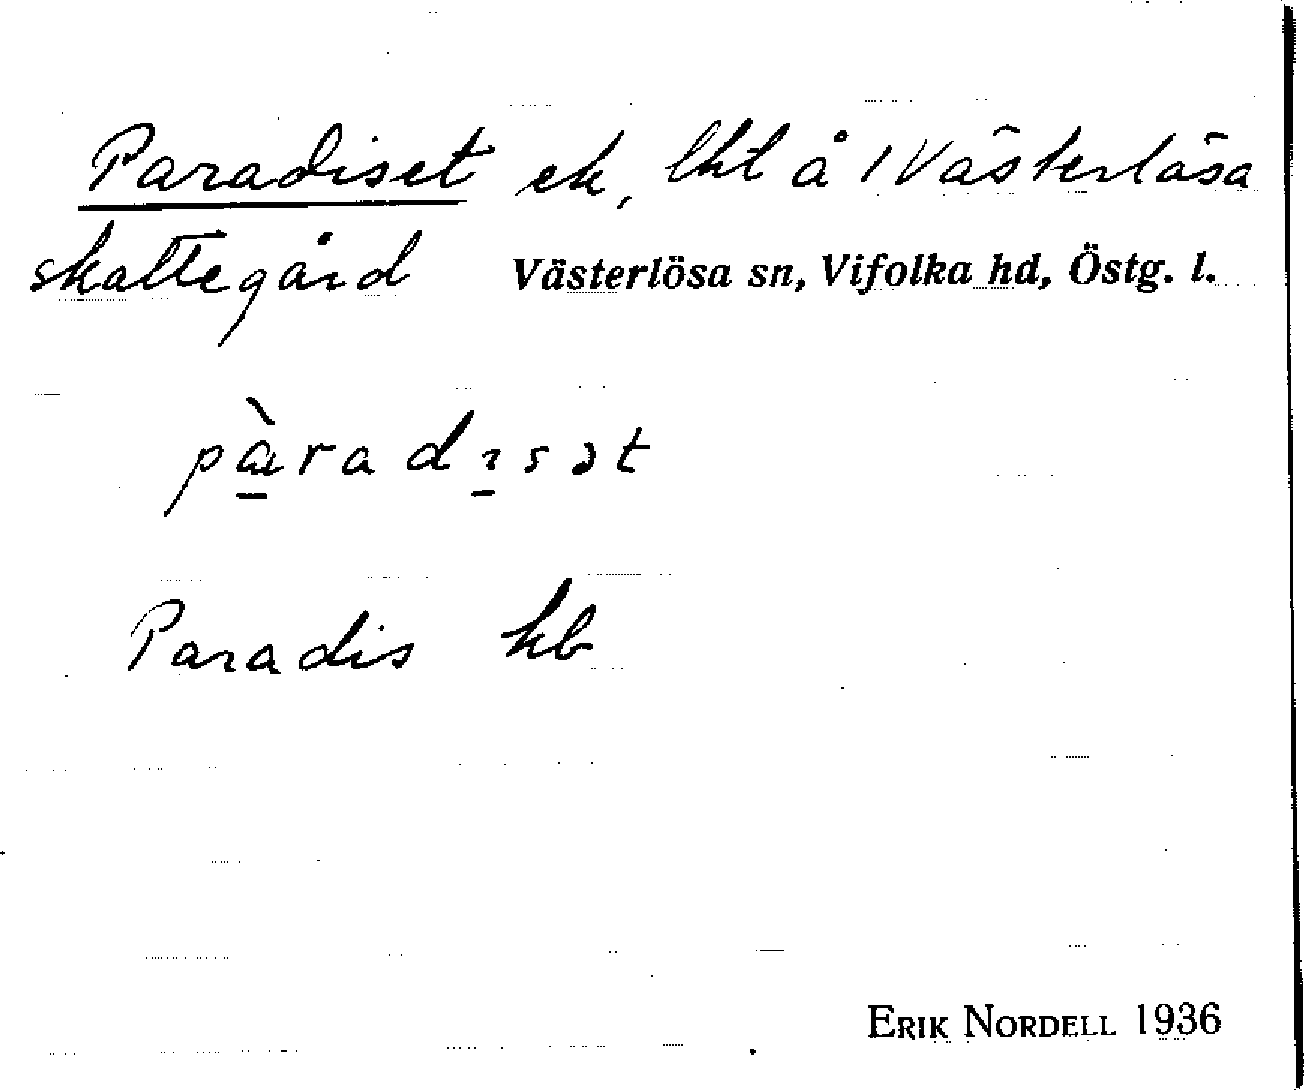 Paradiset ek, lht å 1 Västerlösa
skattegård Västerlösa sn, Vifolka hd, Östg. l.
pàradısət
Paradis hb
ERIK NORDELL 1936